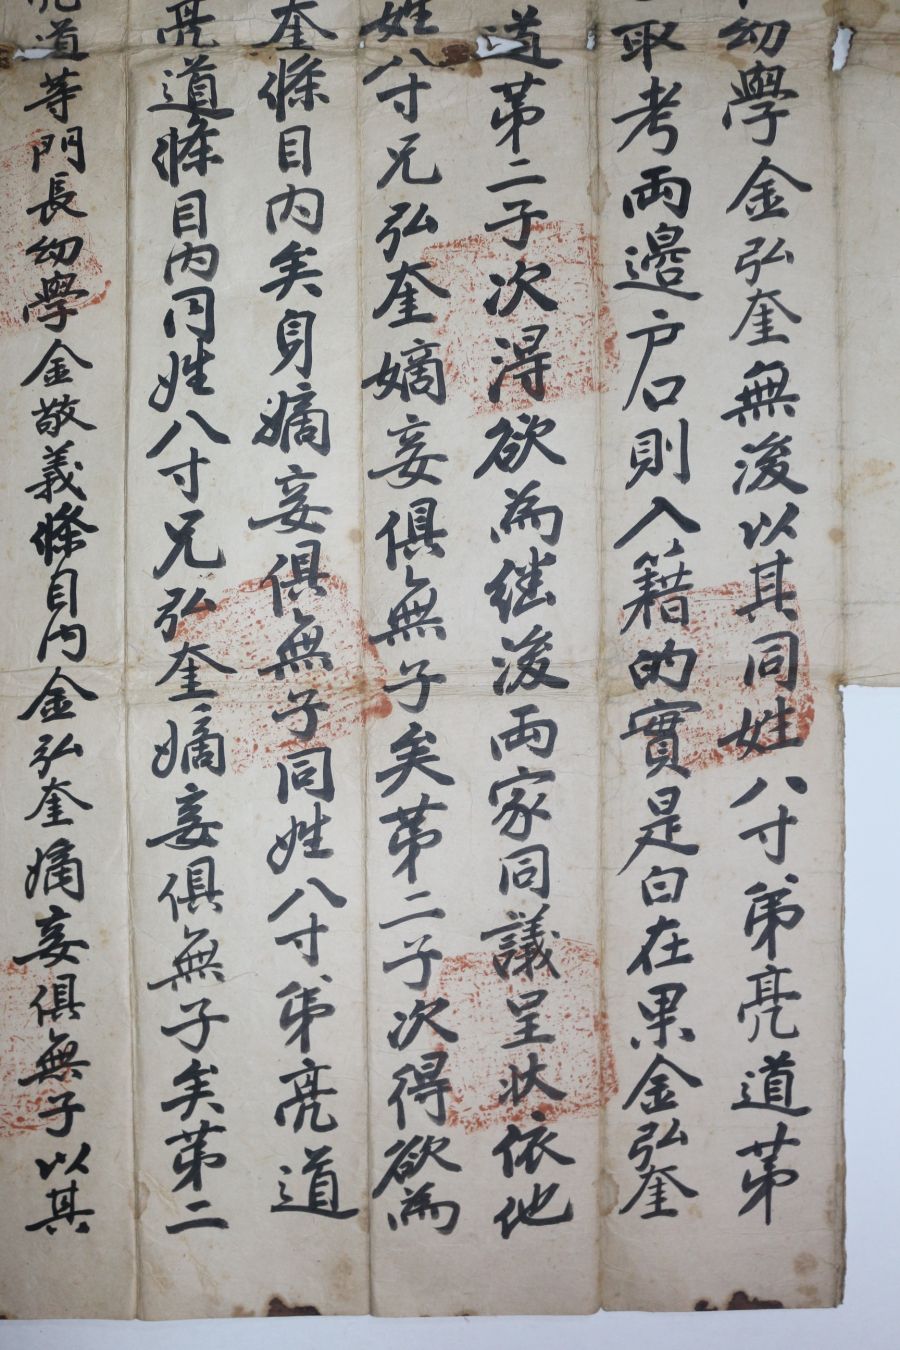 幼學金弘奎無後以其同姓八寸弟亮道第
取考兩邊戶口則入籍的實是白在果金弘奎
道第二子次得欲為继後兩家同議呈狀依他
姓八寸兄弘奎嫡妾俱無子矣第二子次得欲為
奎條目內矣身嫡妾俱無子同姓八寸弟亮道
亮道條目內同姓八寸兄弘奎嫡妾俱無子矣第二
道等門長幼學金敬義條目內金弘奎嫡妾俱無子以其